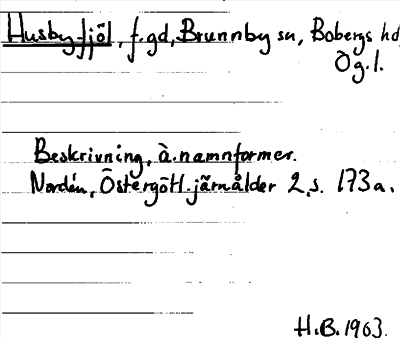 Husby-fjöl, f.gd, Brunnby sn, Bobergs hd,
Ög.l.
Beskrivning, ä. namnformer.
Nordén, Östergötl. järnålder 2, s. 173 a.
H.B. 1963.